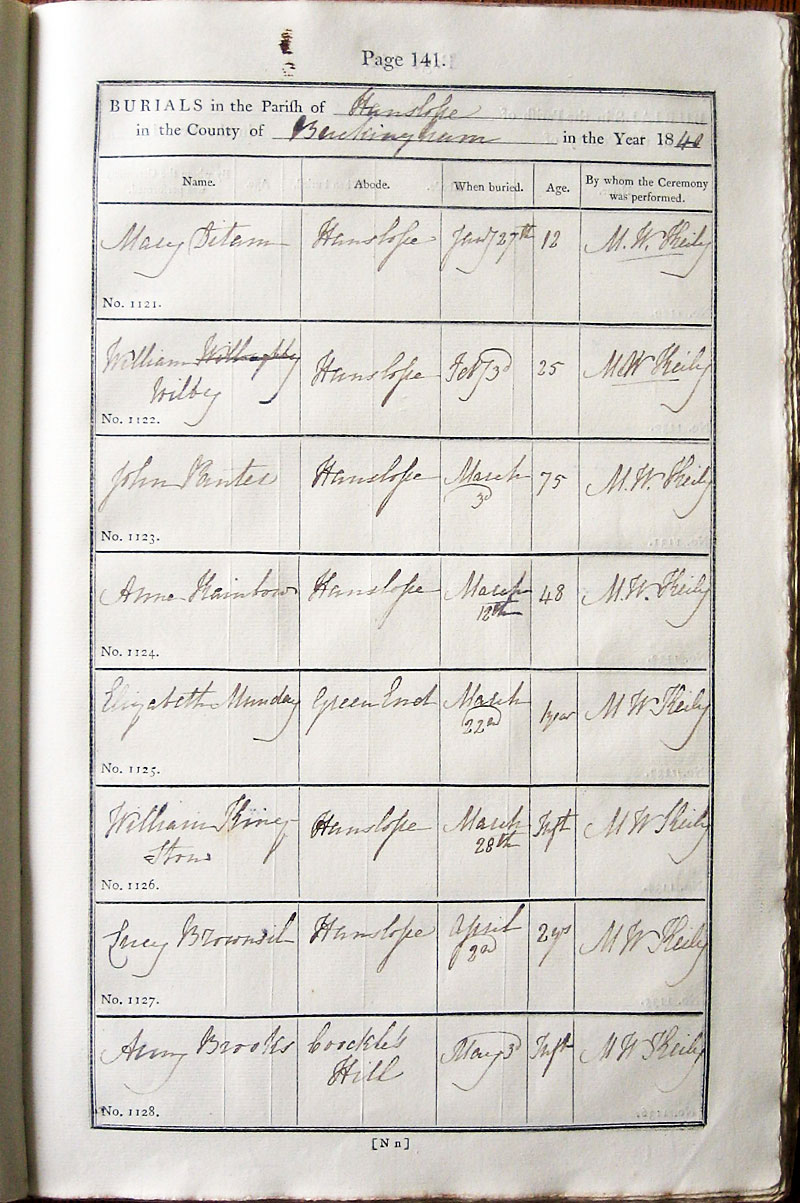 Page 141.
BURIALS in the Parish of Hanslope
in the County of Buckingham in the Year 1840
Name. Abode. When buried. Age. By whom the Ceremony was performed.
Mary Hanslope Jany 27th 12 M. W. Keily
No. 1121.
William Willoughby Hanslope Feby 3d 25 M W Keily
Wilby
No. 1122.
John Panter Hanslope March 75 M. W. Keily
3d
No. 1123.
Anne Rainbow Hanslope March 48 M. W. Keily
12th
No. 1124.
Elizabeth Munday Green End March 1 year M W Keily
22nd
No. 1125.
William King Hanslope March Inft M W Keily
28th
No. 1126.
Lucy Brownsil Hanslope April 2 yrs M W Keily
2nd
No. 1127.
Amy Brooks May 3d Inft M W Keily
Hill
No. 1128.
[N n]